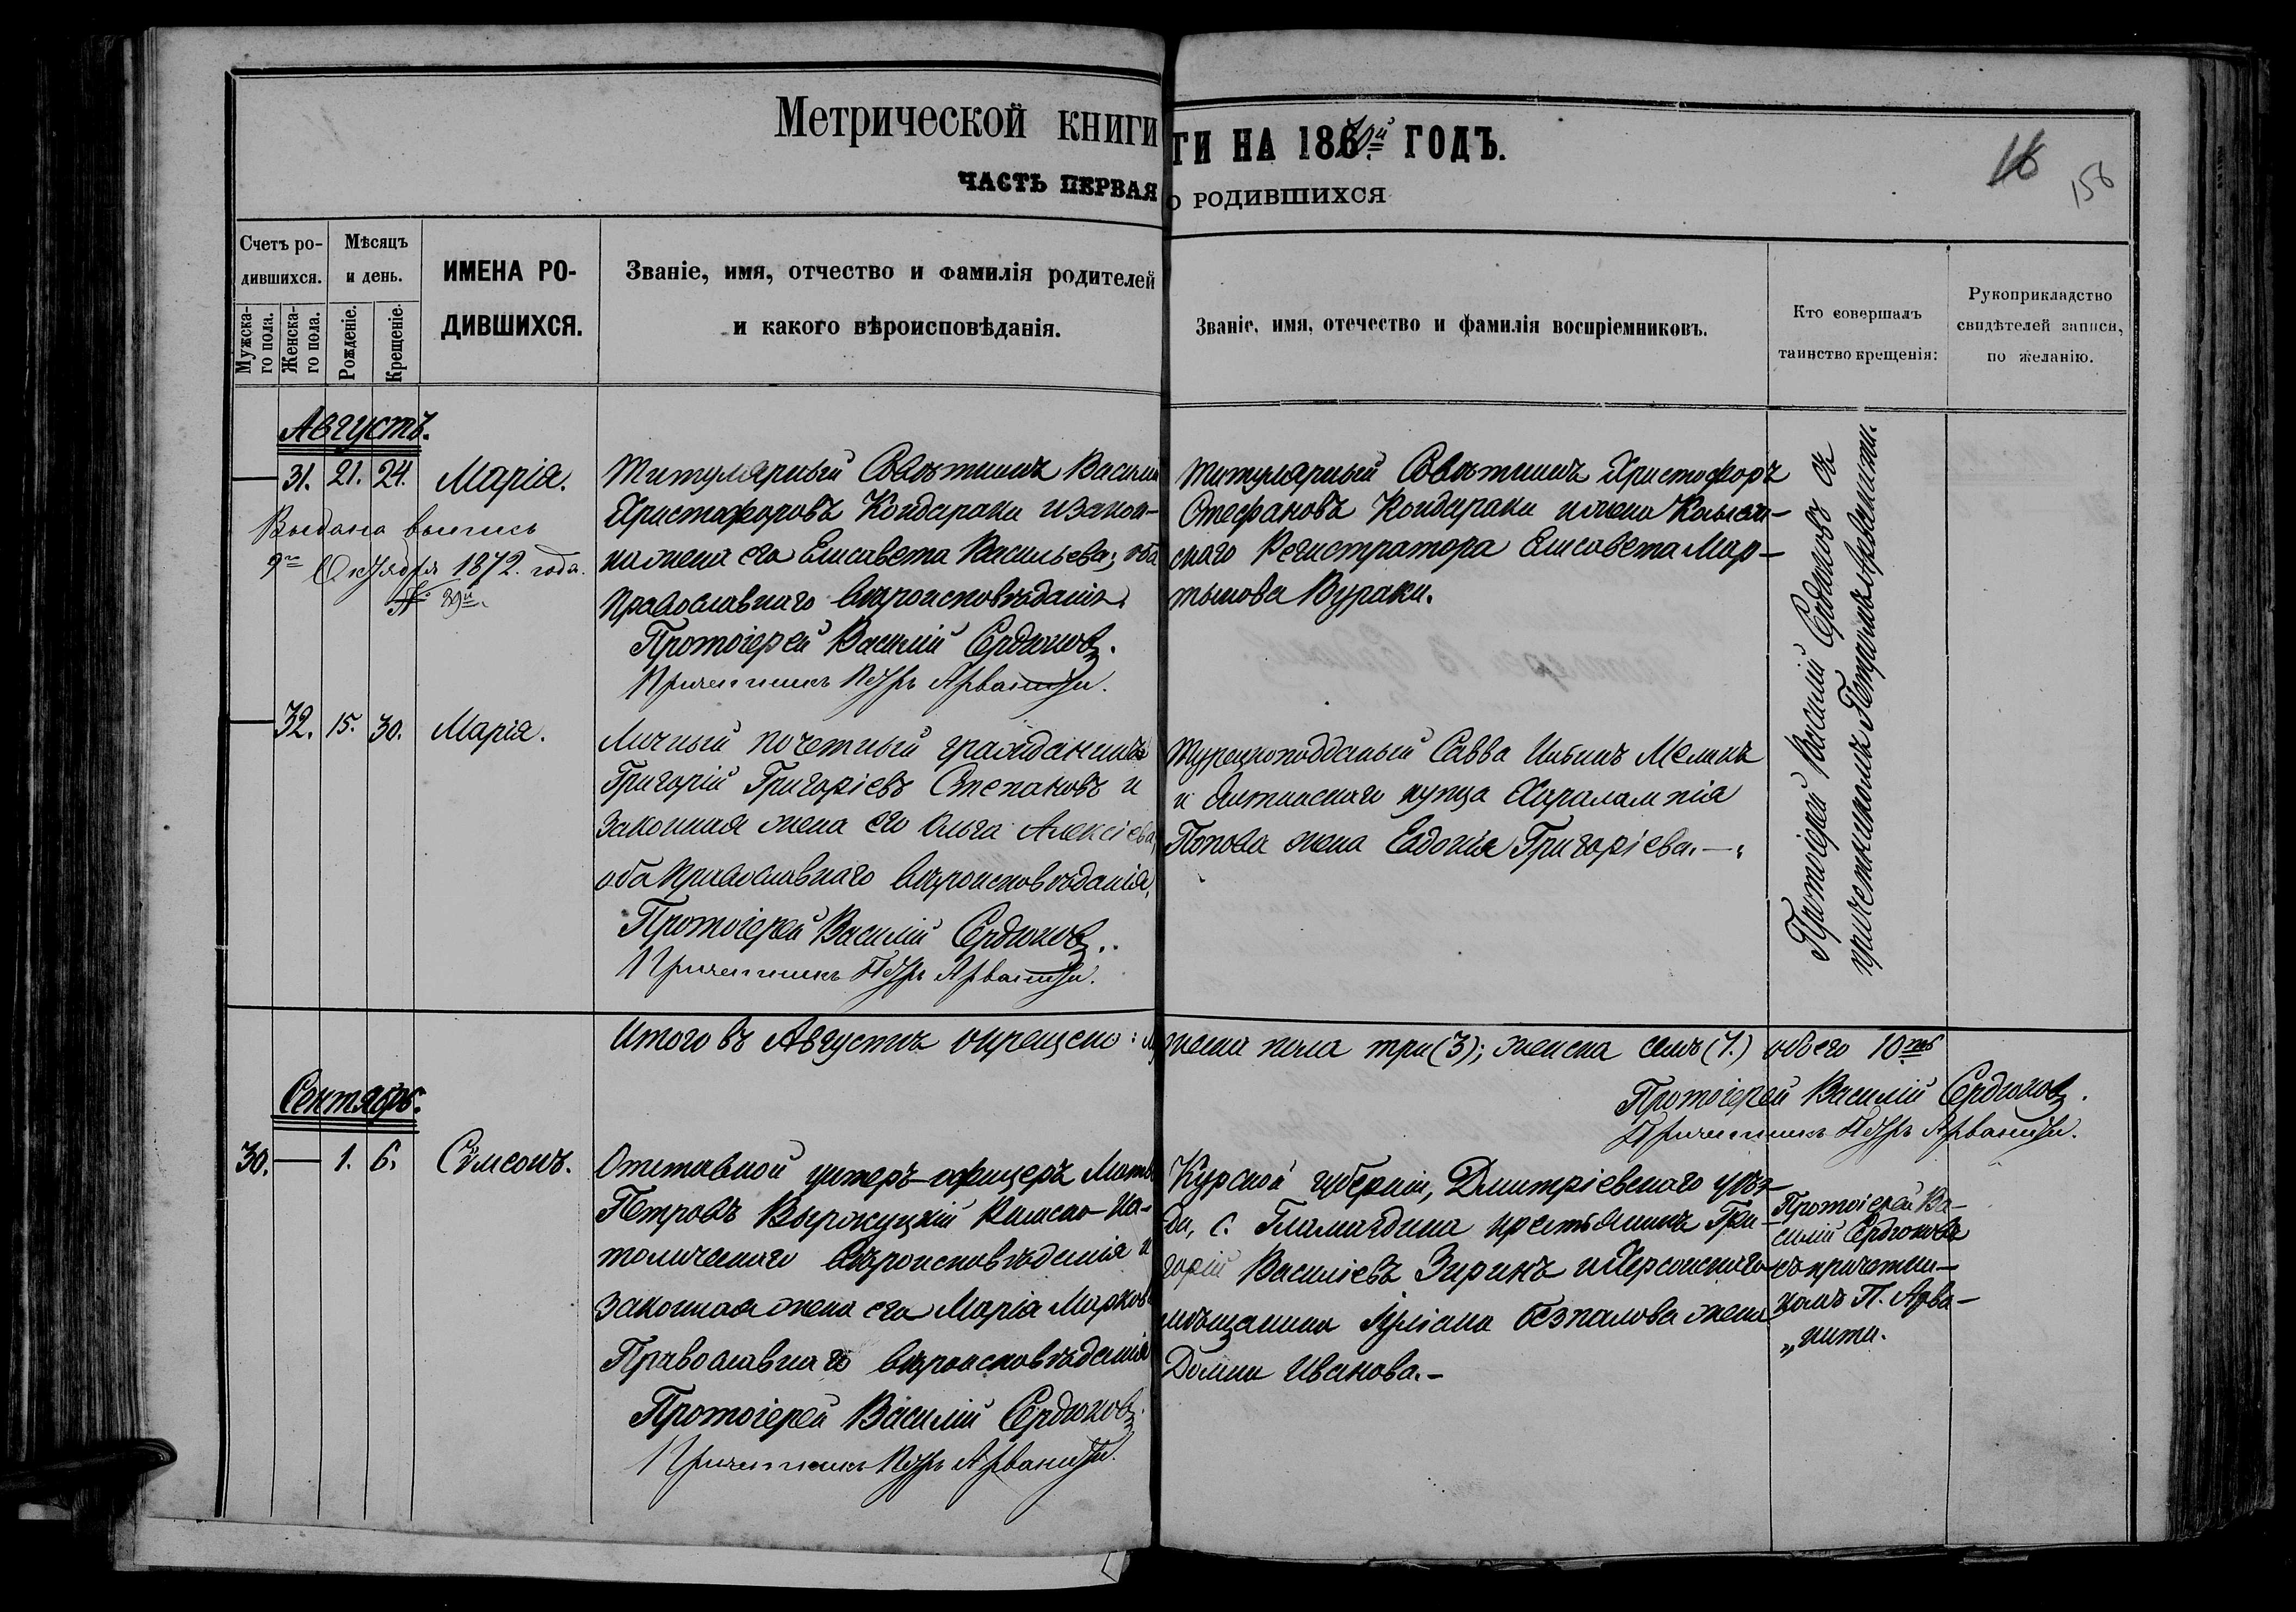 Метрической книги
ГИ НА 1870й ГОДЪ.
ЧАСТЬ ПЕРВАЯ
О РОДИВШИХСЯ
16
156
Счетъ ро-
дившихся.
Мѣсяцъ
и день.
Мужска-
го пола.
Женска-
го пола.
Рожденіе.
Крещеніе.
ИМЕНА РО-
ДИВШИХСЯ.
Званіе, имя, отчество и фамилія родителей
и какого вѣроисповѣданія.
Званіе, имя, отечество и фамилія воспріемниковъ.
Кто совершалъ
таинство крещенія:
Рукоприкладство
свидѣтелей записи,
по желанію.
Августъ.
31. 21. 24. Марія.
Выдана выпись
9го Октября 1872. года.
№
Титулярный Совѣтникъ Василій
Христофоровъ Кондараки и закон-
на жена его Елисавета Васильева; оба
православнаго вѣроисповѣданія.
Протоіерей Василій Сердюковъ.
Причетникъ Петръ Арванити.
Титулярный Совѣтникъ Христофоръ
Стефановъ Кондараки и жена Коллеж-
скаго Регистратора Елисавета Мар-
тынова Вураки.
Протоіерей Василій Сердюковъ съ
причетникомъ Петромъ Арванити.
32. 15. 30. Марія.
Личный почетный гражданинъ
Григорій Григоріевъ Степановъ и
законная жена его Ольга Алексіева,
оба православнаго вѣроисповѣданія,
Протоіерей Василій Сердюковъ.
Причетникъ Петръ Арванити.
Турецкоподданый Савва Ильинъ Меликъ
и Ялтинскаго купца Харалампія
Попова жена Евдокія Григоріева.—
Итого въ Августѣ окрещено: му
жеска пола три (3); женска семь (7.) обоего 10ть
Протоіерей Василій Сердюковъ.
Причетникъ Петръ Арванити.
Сентябрь.
30. 1. 6. Сѵмеонъ.
Отставной унтеръ-офицеръ
Петровъ Католико- Ка-
толическаго вѣроисповѣданія и
законная жена его Марія Маркова
Православнаго вѣроисповѣданія
Протоіерей Василій Сердюковъ.
Причетникъ Петръ Арванити.
Курской губерніи, Дмитріевскаго уѣз-
да, с. крестьянинъ Гри-
горій Василіевъ Зиринъ и Херсонскаго
мѣщанина Іуліана Безпалова жена
Домна Иванова.-
Протоіерей Ва-
силій Сердюковъ
съ причетни-
комъ П. Арва-
„нити.